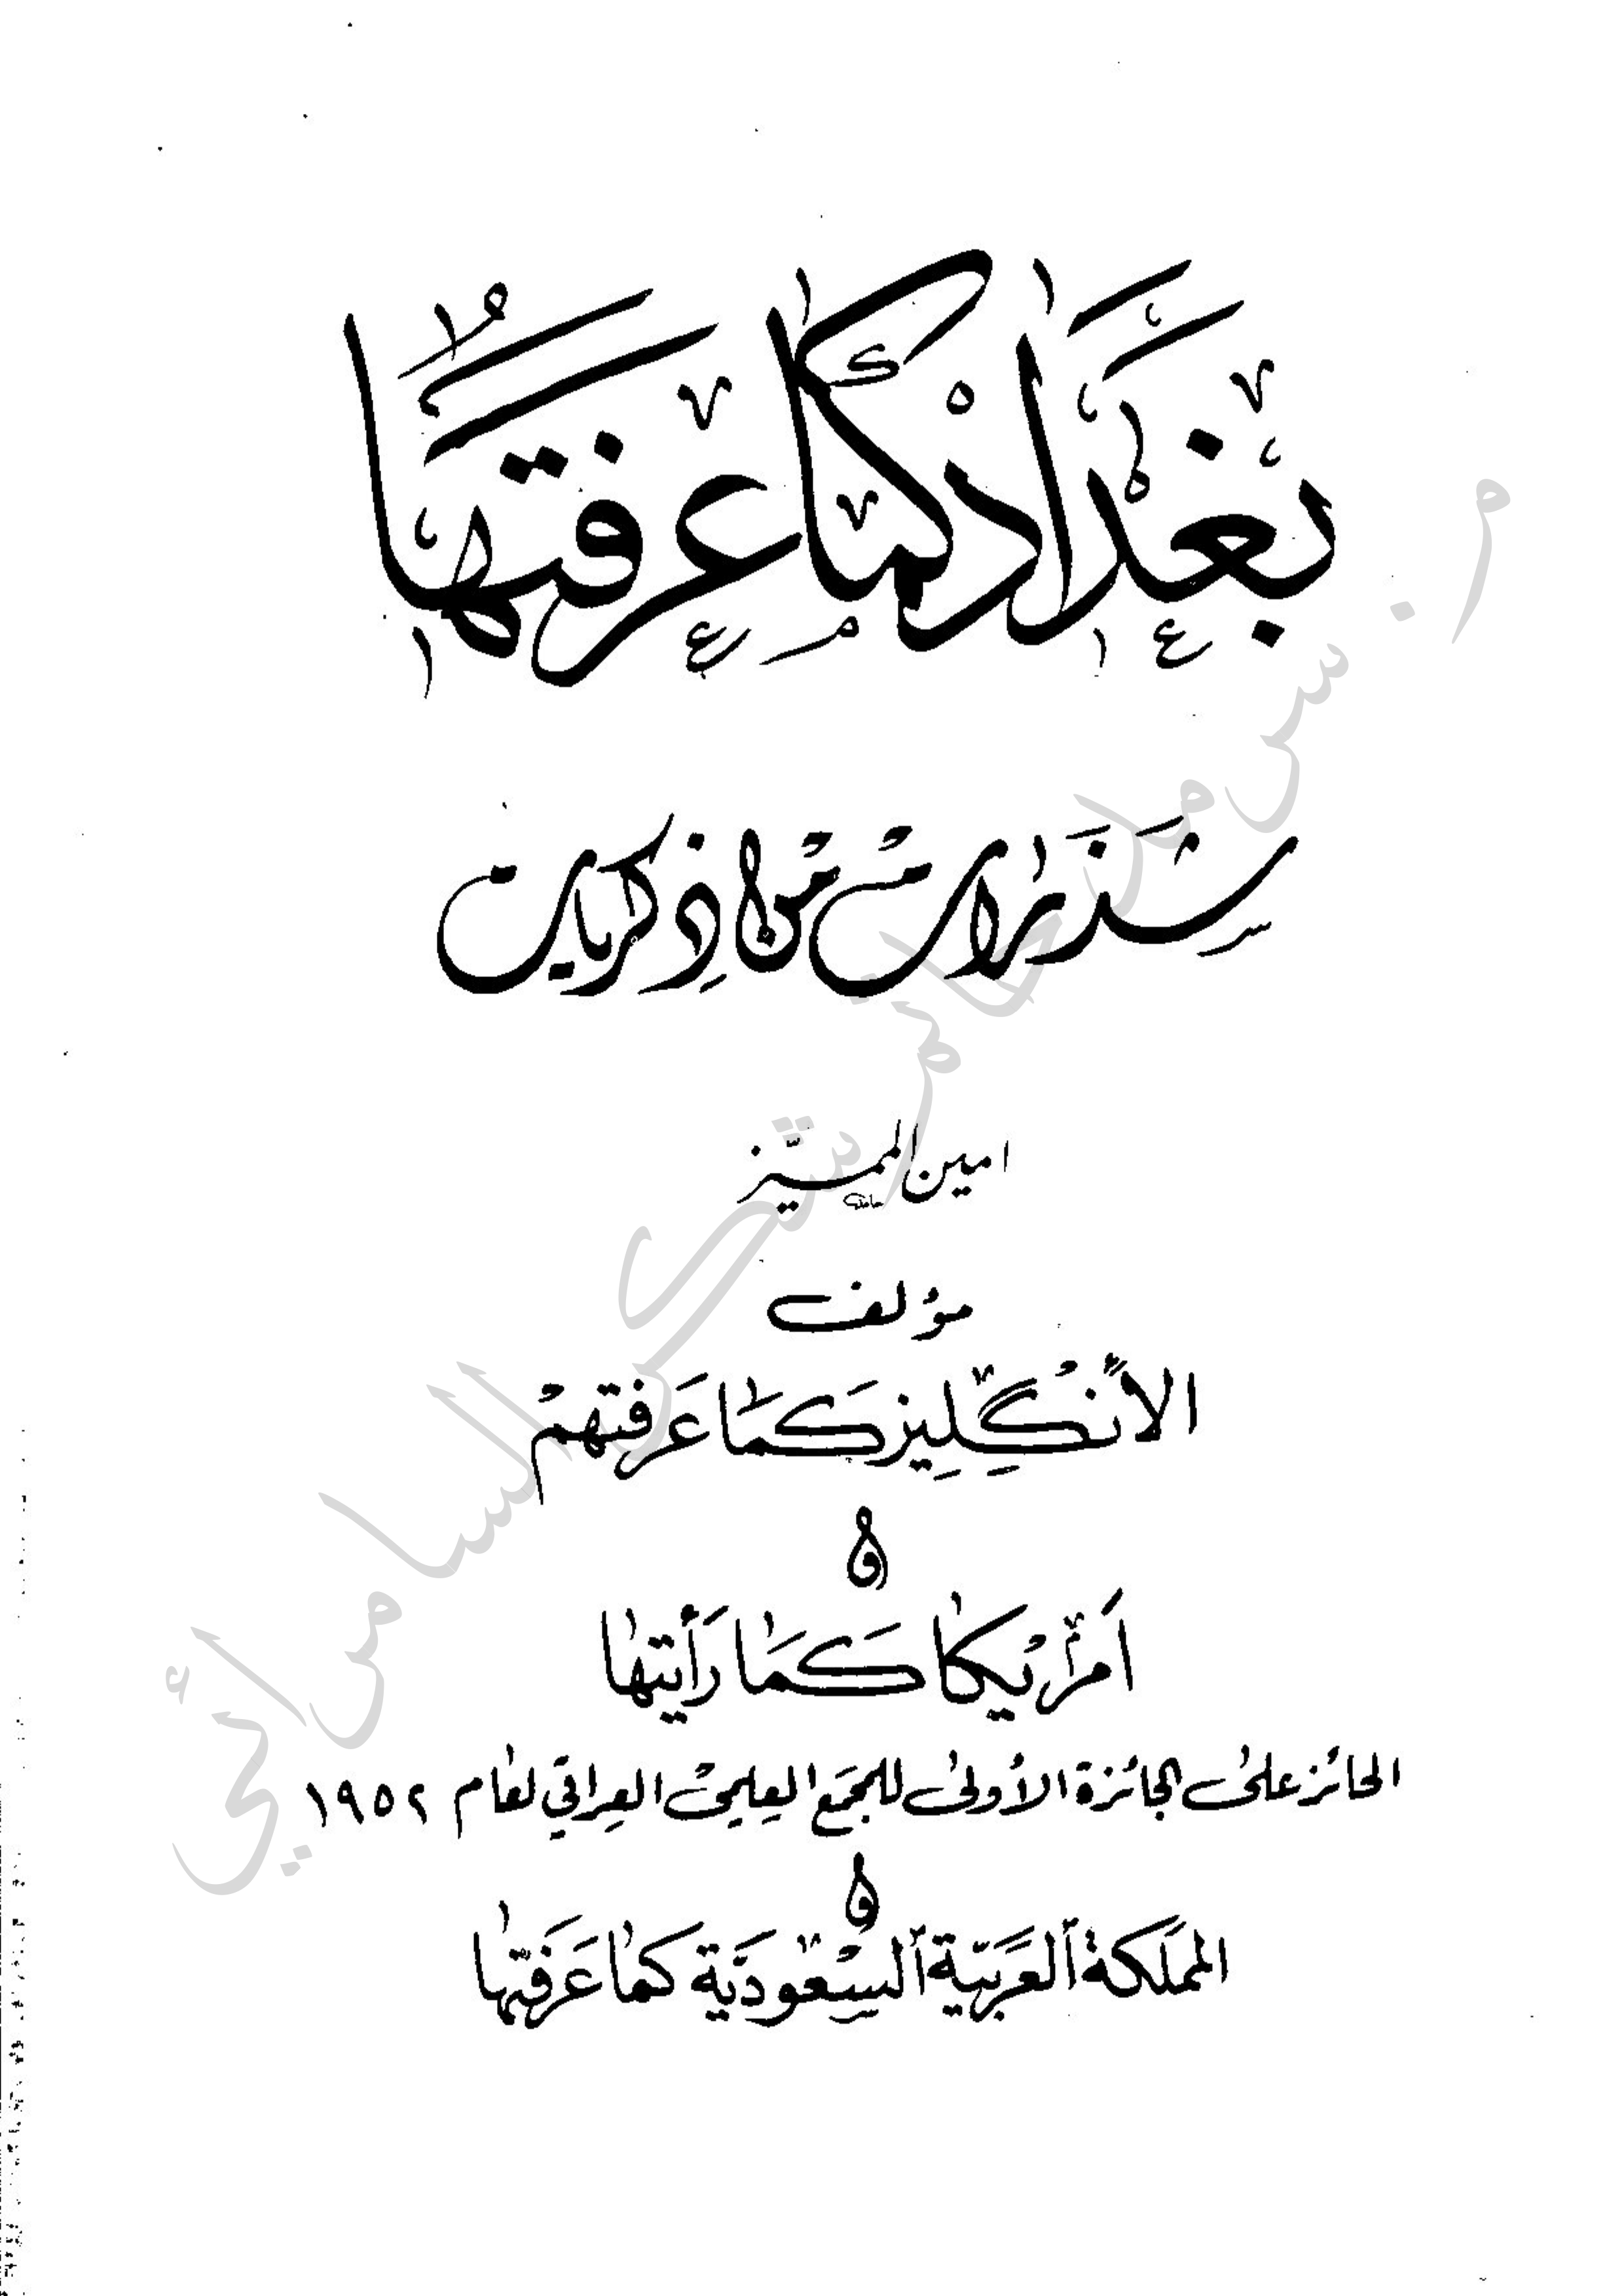 بغداد كما عرفتها
شذرات من ذكريات
امين المميّز
مؤلف
الأنگليز كما عرفتهم
و
أمريكا كما رأيتها
الحائز على الجائزة الأولى للمجمع العلمي العراقي لعام ١٩٥٢
و
المملكة العربية السعودية كما عرفتها
م. سرمد حاتم شكر السامرائي